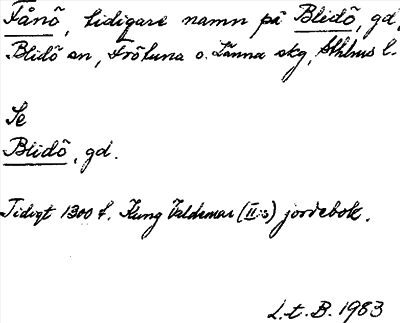 Fånö, tidigare namn på Blidö, gd,
Blidö sn, Frötuna o. Länna skg, Sthlms l.
Se
Blidö, gd.
Tidigt 1300 t. Kung Valdemar (II:s) jordebok.
L.t.B. 1983